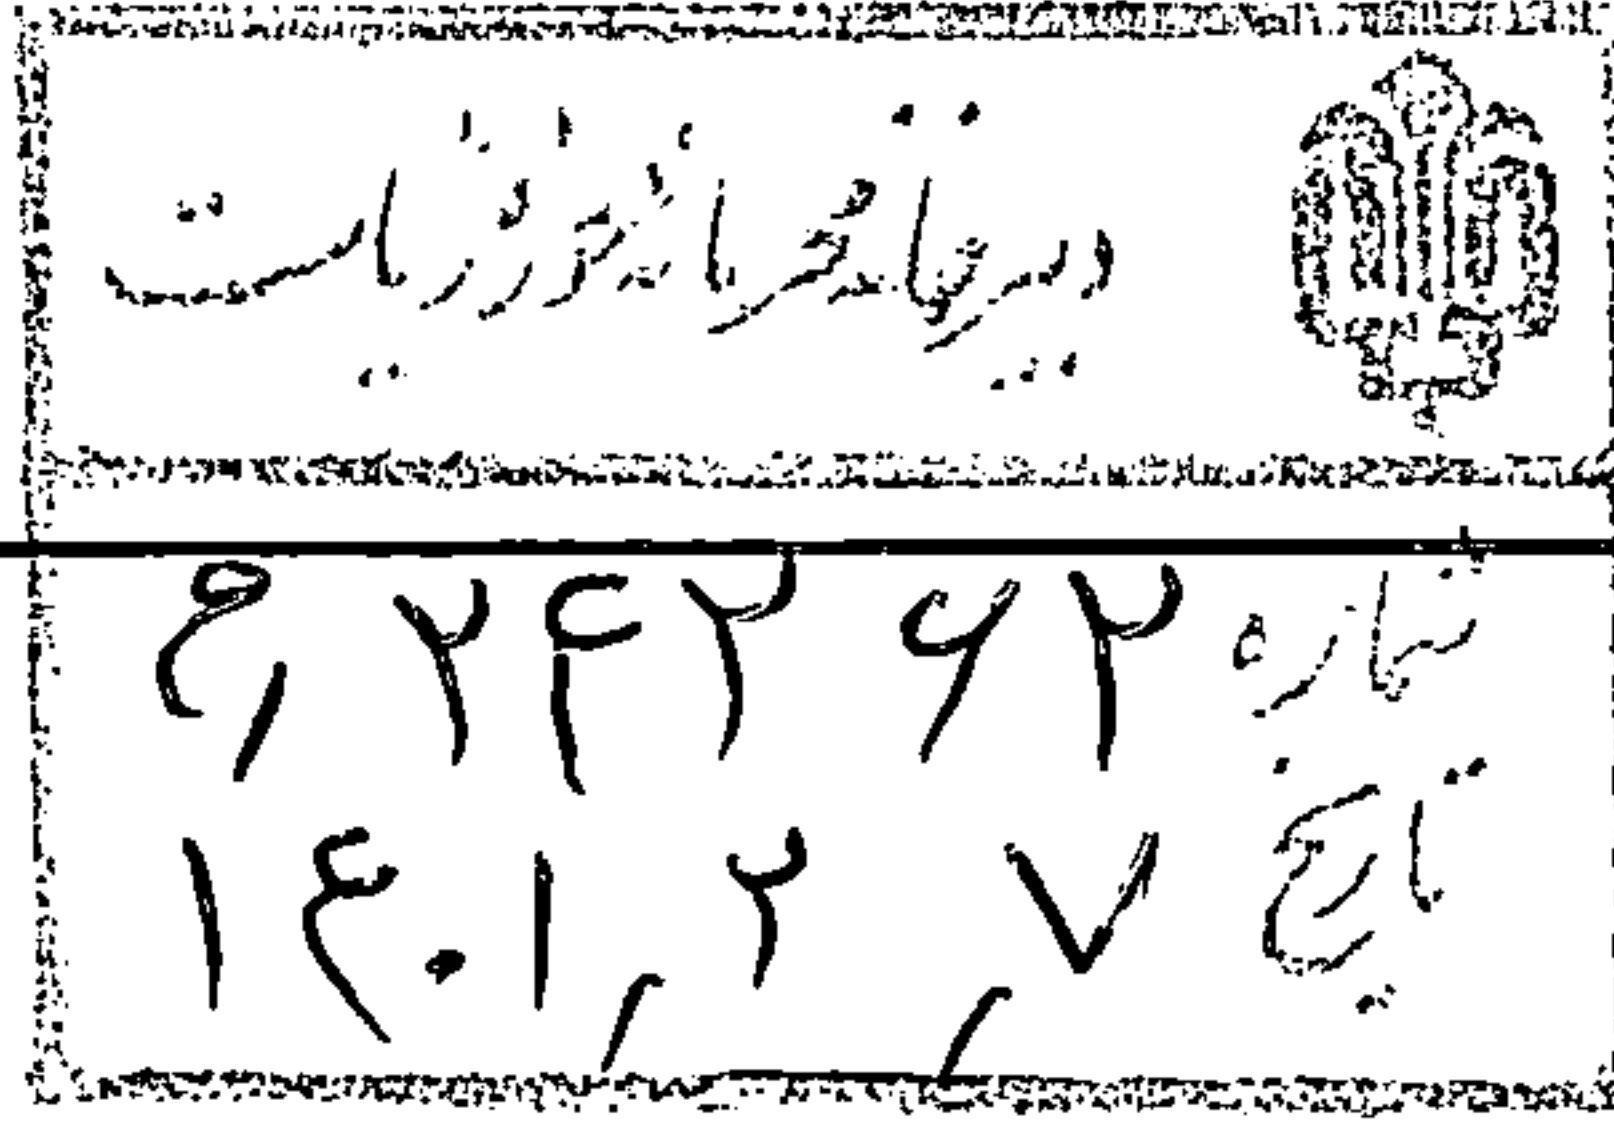 دبیرخانه محرمانه حوزه ریاست
شماره ۲۶۲۴۲/م
تاریخ ۱۴۰۱/۲/۷